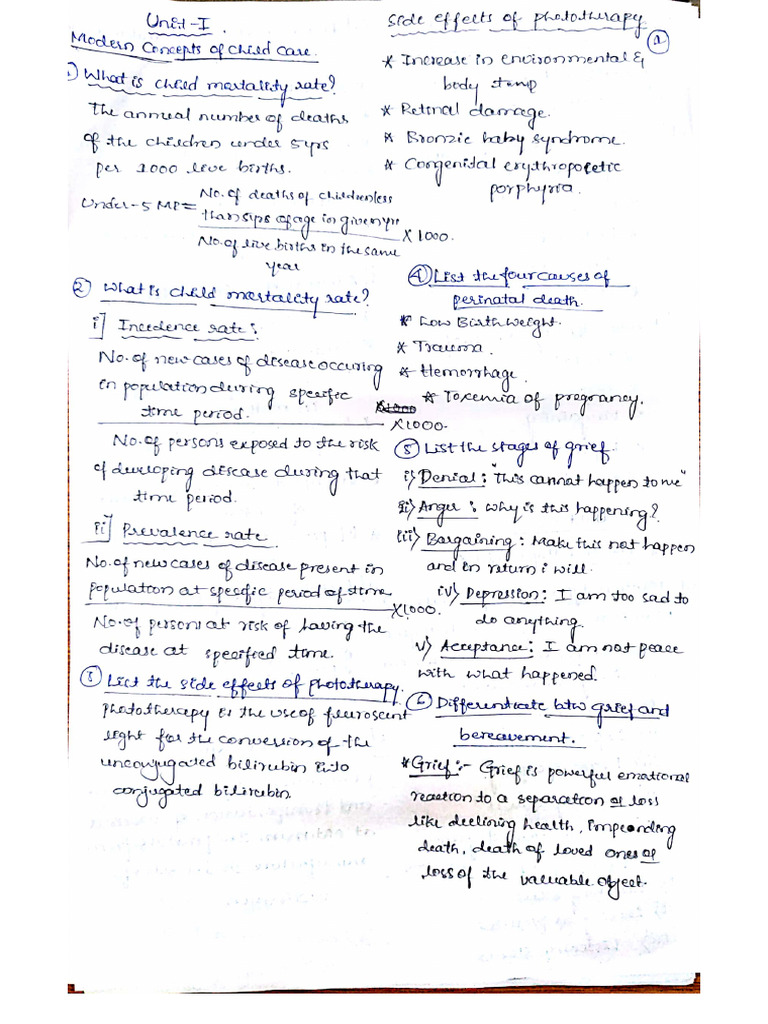 Unit-I.
Modern Concepts of Child Care.
1) What is child mortality rate?
The annual number of deaths
of the children under 5yrs
per 1000 live births.
Under-5 MR = No. of deaths of children less
than 5yrs of age in given yr
X 1000.
No. of live births in the same
year
2) What is child mortality rate?
i] Incedence rate:
No. of new cases of disease occuring
in population during specific
time period.
X1000.
No. of persons exposed to the risk
of developing disease during that
time period.
ii] Prevalence rate
No. of new cases of disease present in
population at specific period of time
X1000.
No. of persons at risk of having the
disease at specified time.
3) List the side effects of phototherapy.
Phototherapy is the use of fluroscent
light for the conversion of the
unconjugated bilirubin into
conjugated bilirubin.
Side effects of phototherapy
1
* Increase in environmental &
body temp
* Retinal damage.
* Bronzie baby syndrome.
* Congenital erythropoietic
porphyria.
4) List the four causes of
perinatal death.
* Low Birth weight.
* Trauma.
* Hemorrhage.
* Toxemia of pregnancy.
5) List the stages of grief
i) Denial: "This cannot happen to me"
ii) Anger: Why is this happening?
iii) Bargaining: Make this not happen
and in return i will.
iv) Depression: I am too sad to
do anything.
v) Acceptance: I am not peace
with what happened.
6) Differenticate btw grief and
bereavement.
* Grief:- Grief is powerful emotional
reaction to a separation or loss
like declining health, impending
death, death of loved ones or
loss of the valuable object.